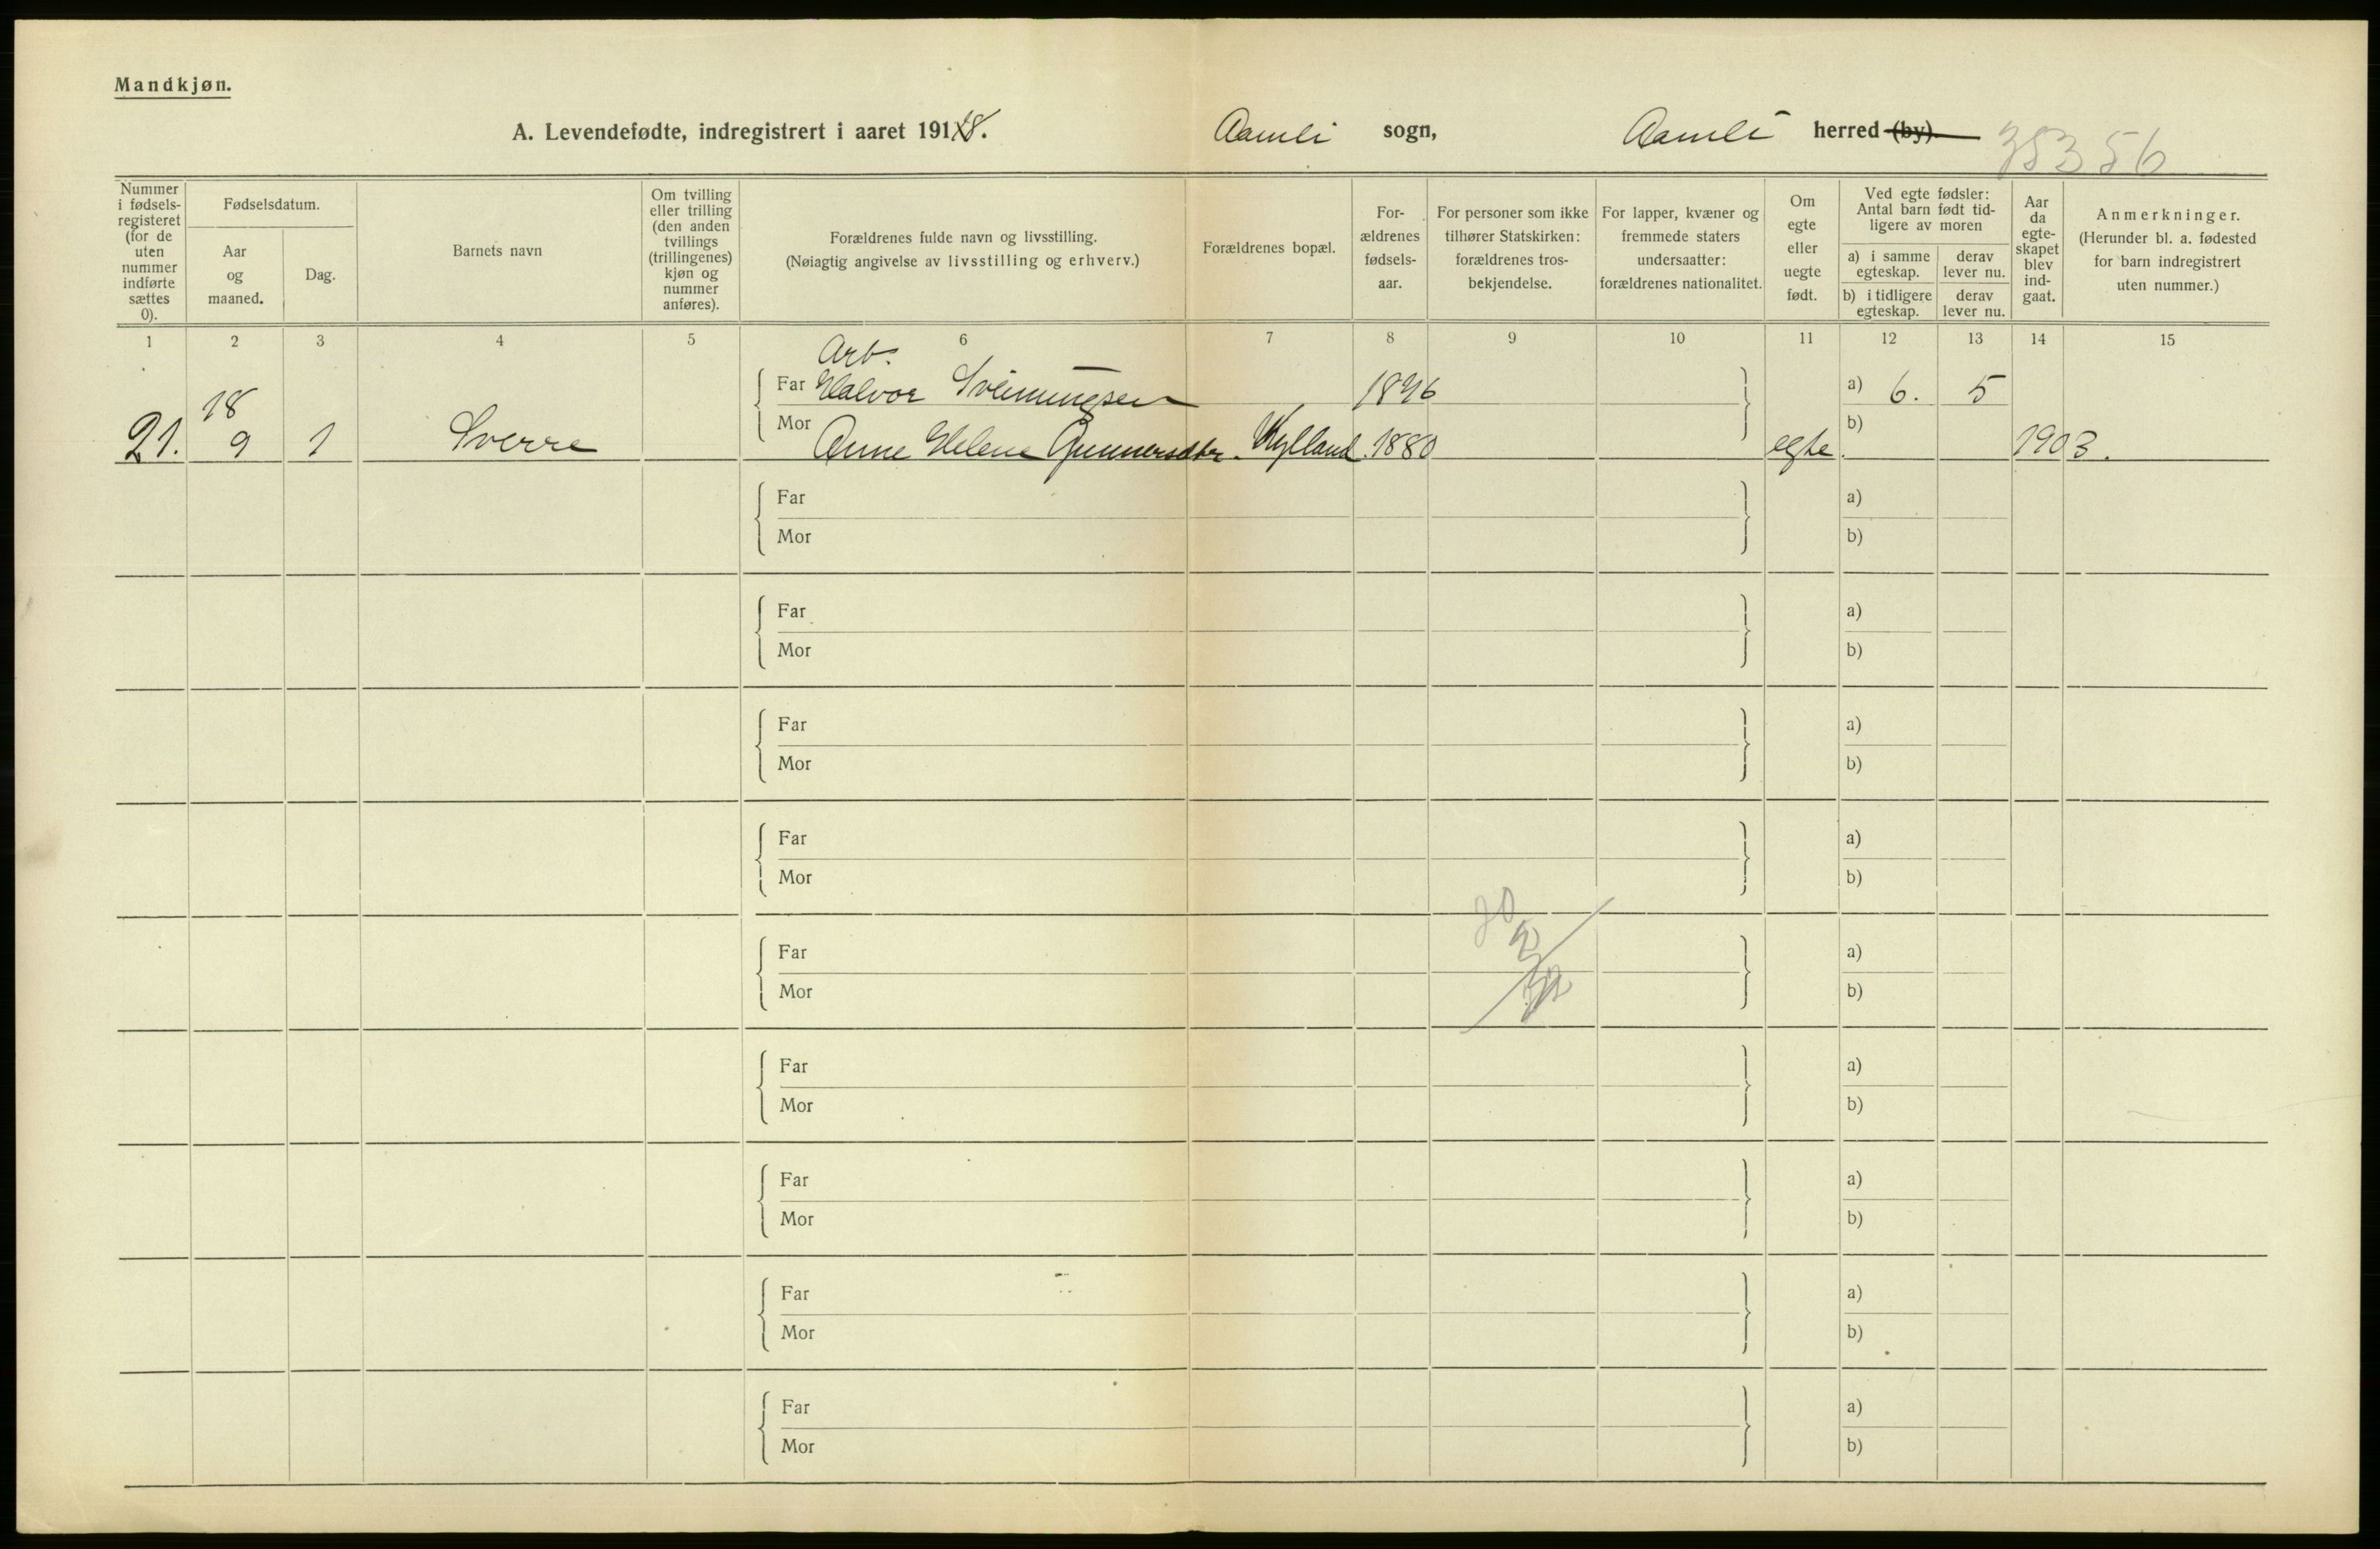 Mandkjøn.
A. Levendefødte, indregistrert i aaret 1918. Aamli sogn, Aamli herred (by).
Nummer i fødsels-registeret (for de uten nummer indførte sættes 0).
Fødselsdatum.
Aar og maaned.
Dag.
Barnets navn
Om tvilling eller trilling (den anden tvillings (trillingenes) kjøn og nummer anføres).
Forældrenes fulde navn og livsstilling.
(Nøiagtig angivelse av livsstilling og erhverv.)
Forældrenes bopæl.
For-ældrenes fødsels-aar.
For personer som ikke tilhører Statskirken: forældrenes tros-bekjendelse.
For lapper, kvæner og fremmede staters undersaatter: forældrenes nationalitet.
Om egte eller uegte født.
Ved egte fødsler: Antal barn født tid-ligere av moren
a) i samme egteskap.
derav lever nu.
b) i tidligere egteskap.
derav lever nu.
Aar da egte-skapet blev ind-gaat.
Anmerkninger.
(Herunder bl. a. fødested for barn indregistrert uten nummer.)
1 2 3 4 5 6 7 8 9 10 11 12 13 14 15
Arb.
18 Far Halvor Sveinungsen a) 6. 5
21. 9 1 Sverre Mor Anne Helene Gunnersdtr. Hylland 1880 egte. b) 1903.
Far a)
Mor b)
Far a)
Mor b)
Far a)
Mor b)
Far a)
Mor b)
Far a)
Mor b)
Far a)
Mor b)
Far a)
Mor b)
Far a)
Mor b)
Far a)
Mor b)